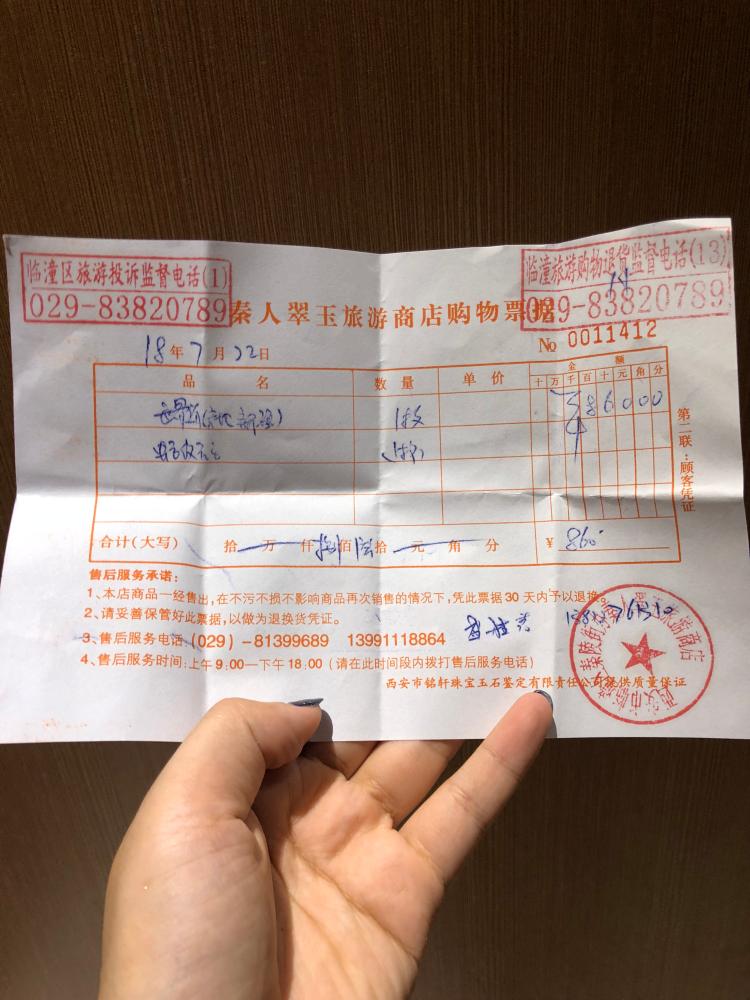 临潼区旅游投诉监督电话(1)
029-83820789
临潼旅游购物退货监督电话(13)
029-83820789
秦人翠玉旅游商店购物票据
№ 0011412
18年7月22日
品 名 数 量 单 价 金 额
十 万 千 百 十 元 角 分
1枚 86000
合计(大写) 拾 万 仟 捌 佰 陆 拾 元 角 分 ¥ 860
第二联：顾客凭证
售后服务承诺：
1、本店商品一经售出，在不污不损不影响商品再次销售的情况下，凭此票据30天内予以退换。
2、请妥善保管好此票据，以做为退换货凭证。
3、售后服务电话 (029) -81399689 13991118864
4、售后服务时间:上午9:00—下午18:00 (请在此时间段内拨打售后服务电话)
西安市铭轩珠宝玉石鉴定有限责任公司提供质量保证